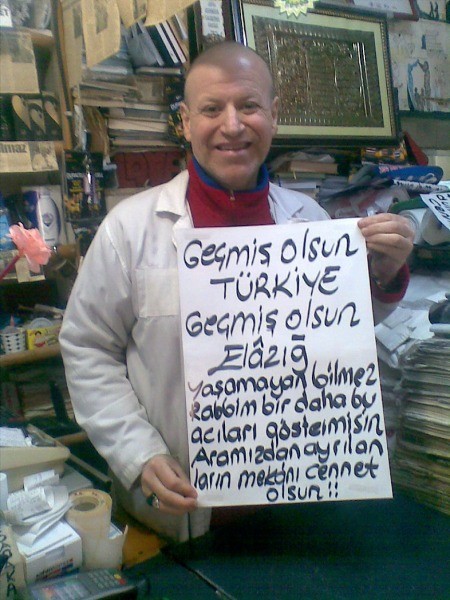 Geçmiş Olsun
TÜRKİYE
Geçmiş olsun
Elâzığ
Yaşamayan bilmez
Rabbim bir daha bu
acıları göstermisin
Aramızdan ayrılan
ların mekânı cennet
olsun!!